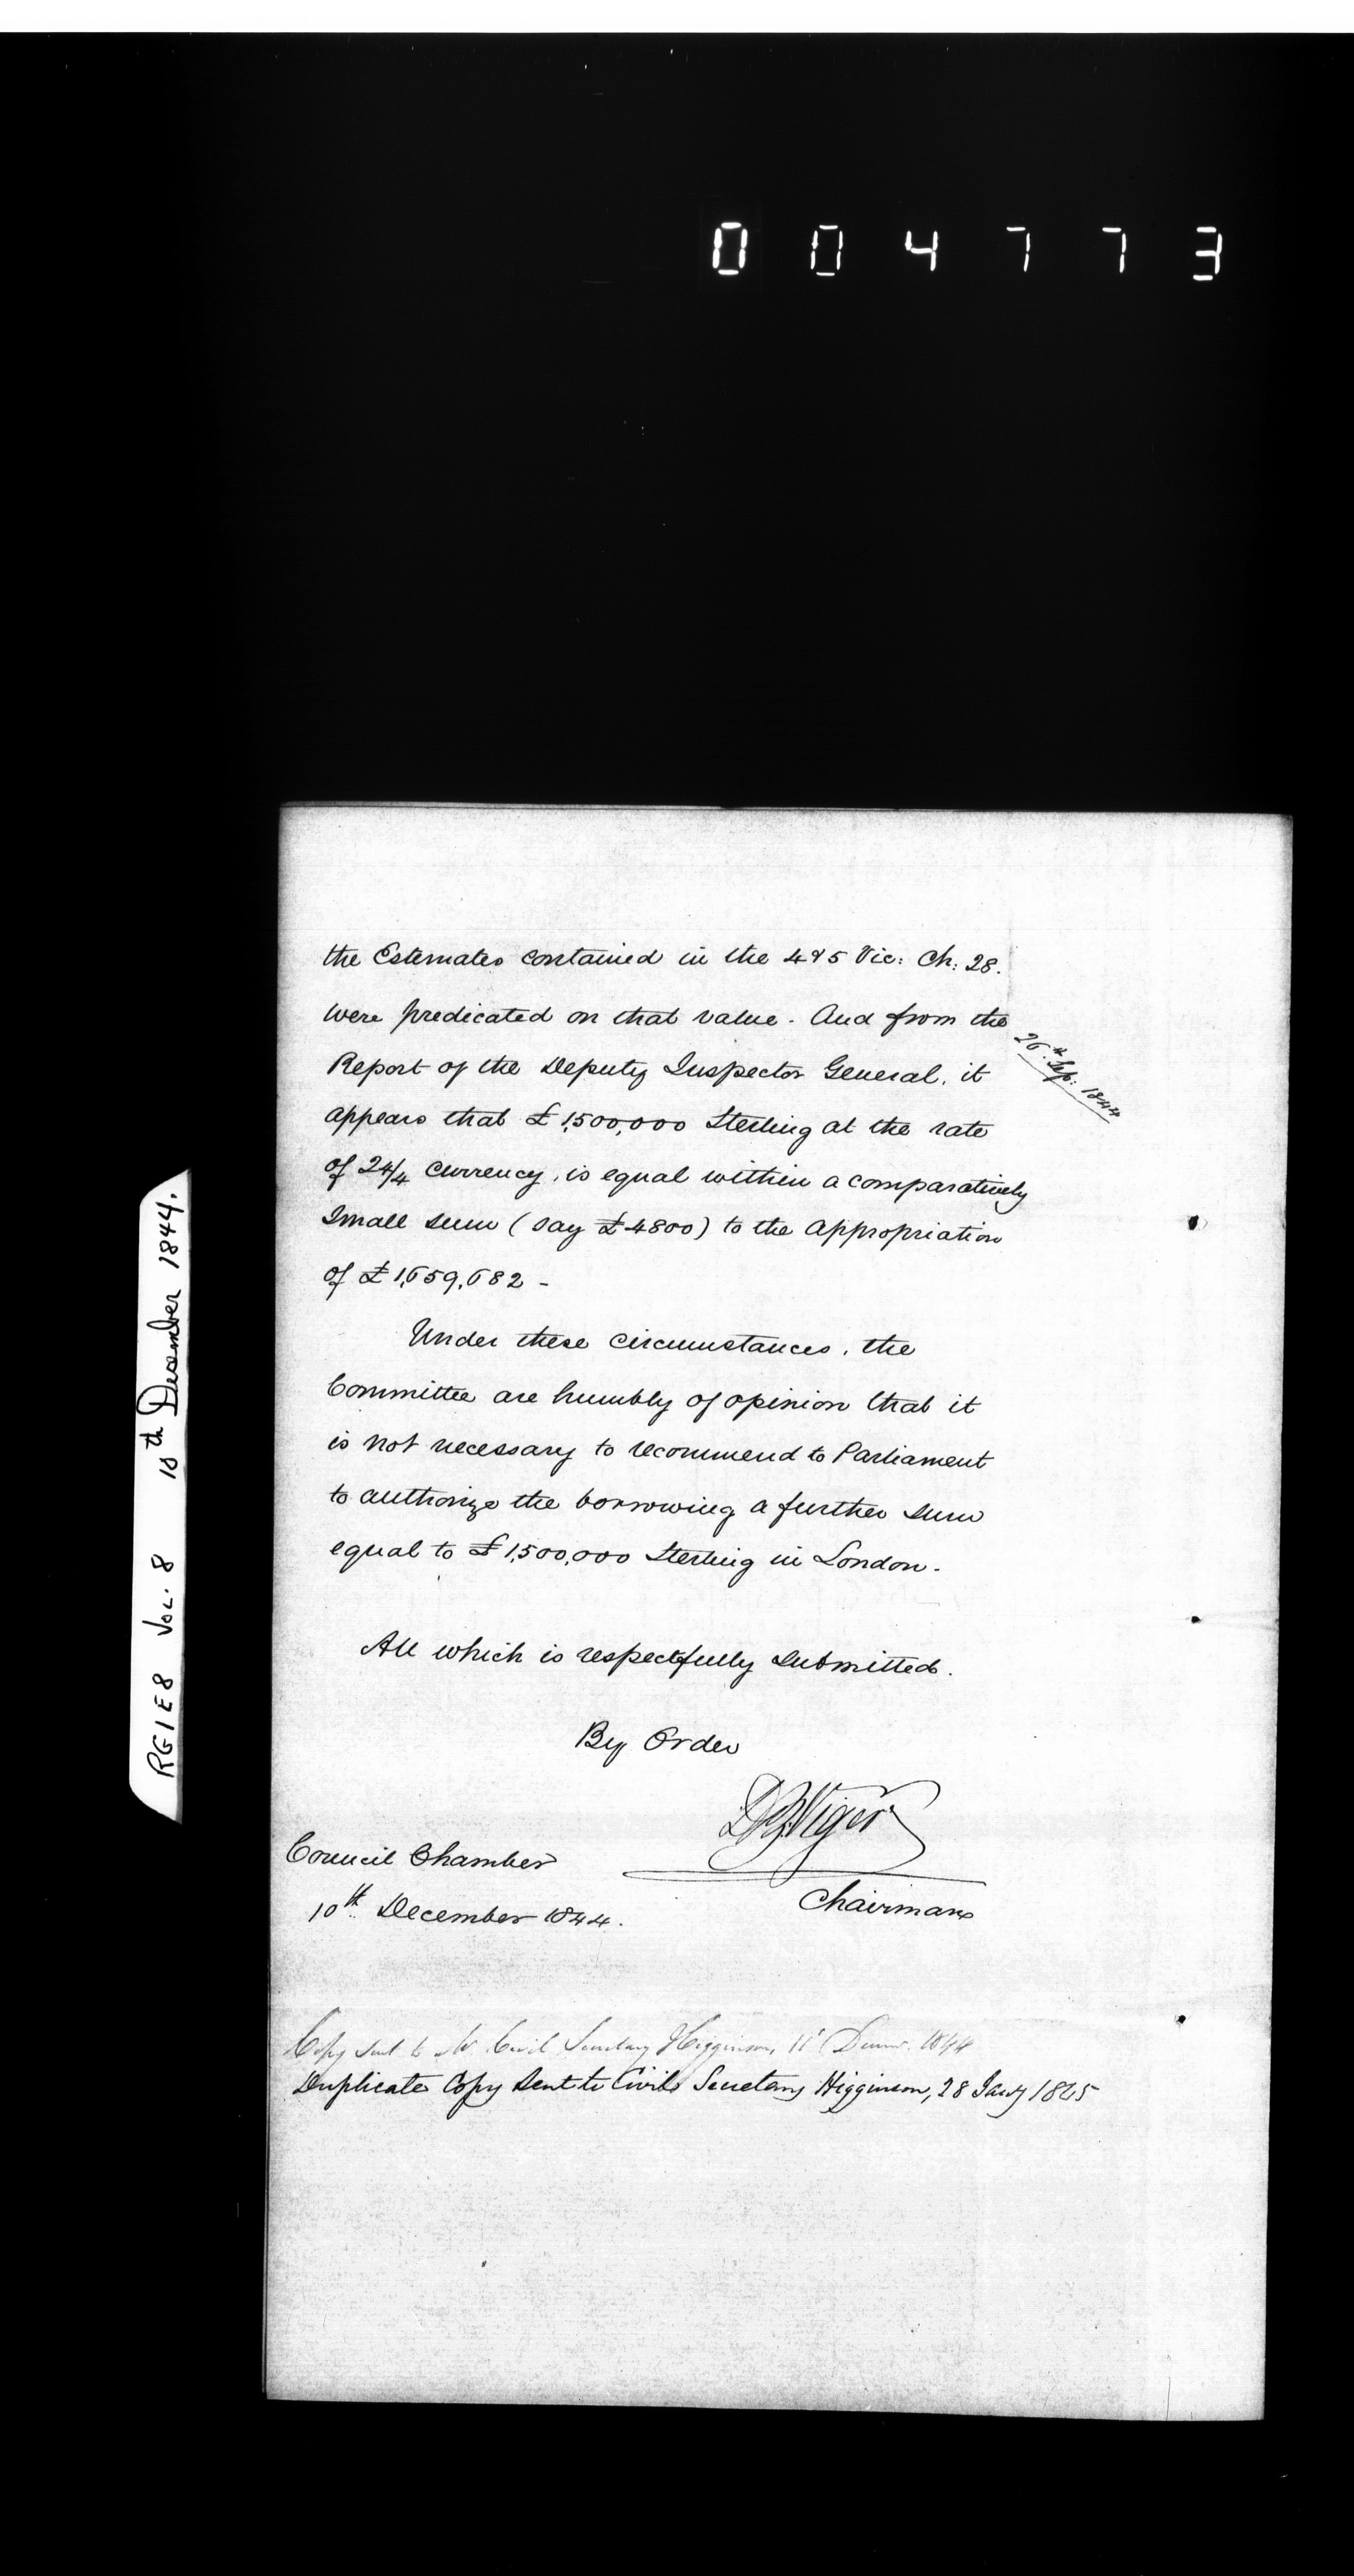 0 0 4 7 7 3
the Estimates contained in the 4 & 5 Vic: Ch: 28.
were predicated on that value. And from the
26.th Sep. 1844
Report of the Deputy Inspector General, it
appears that £1,500,000 Sterling at the rate
of 24/4 Currency, is equal within a comparatively
small sum (say £4800) to the Appropriation
of £1,659,682 -
Under these circumstances, the
Committee are humbly of opinion that it
is not necessary to recommend to Parliament
to authorize the borrowing a further sum
equal to £1,500,000 Sterling in London.
All which is respectfully submitted.
By Order
DBViger
Chairman
Council Chamber
10th December 1844.
Copy sent to Mr Civil Secretary Higginson, 11 Decmr. 1844
Duplicate Copy sent to Civil Secretary Higginson, 28 Jany 1845
RG1E8 VOL. 8 10th December 1844.